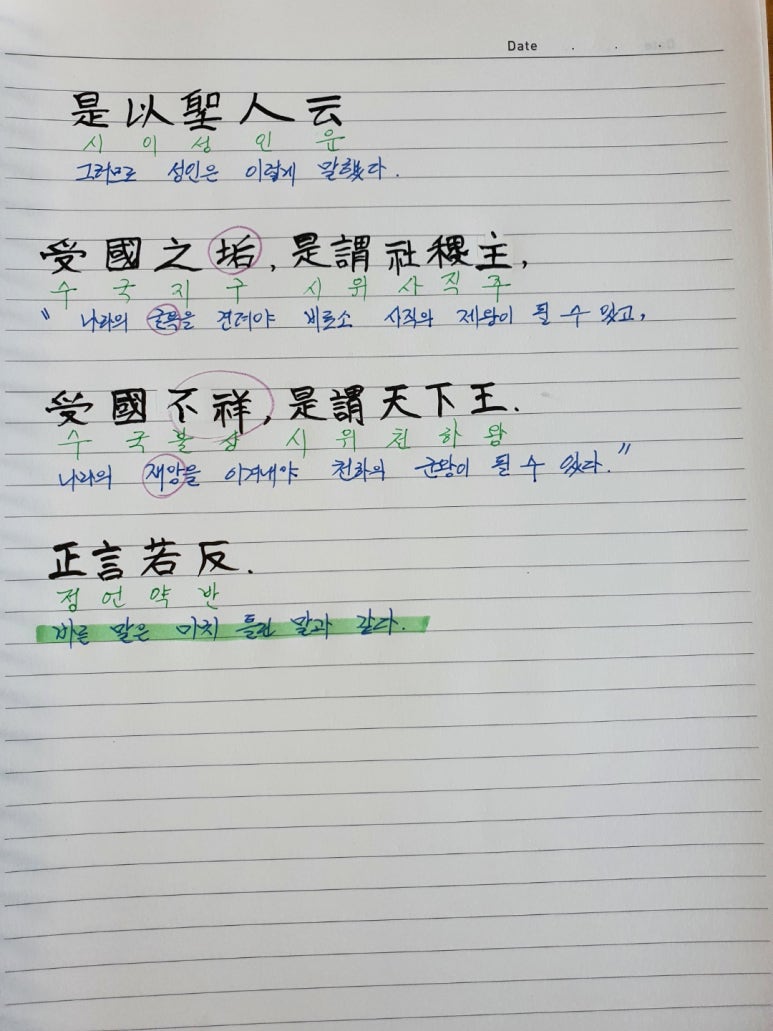 Date . . .
是以聖人云
시 이 성 인 운
그러므로 성인은 이렇게 말했다.
受國之垢, 是謂社稷主,
수 국 지 구 시 위 사 직 주
" 나라의 굴욕을 견뎌야 비로소 사직의 제왕이 될 수 있고,
受國不祥, 是謂天下王.
수 국 불 상 시 위 천 하 왕
나라의 재앙을 이겨내야 천하의 군왕이 될 수 있다."
正言若反.
정 언 약 반
바른 말은 마치 틀린 말과 같다.